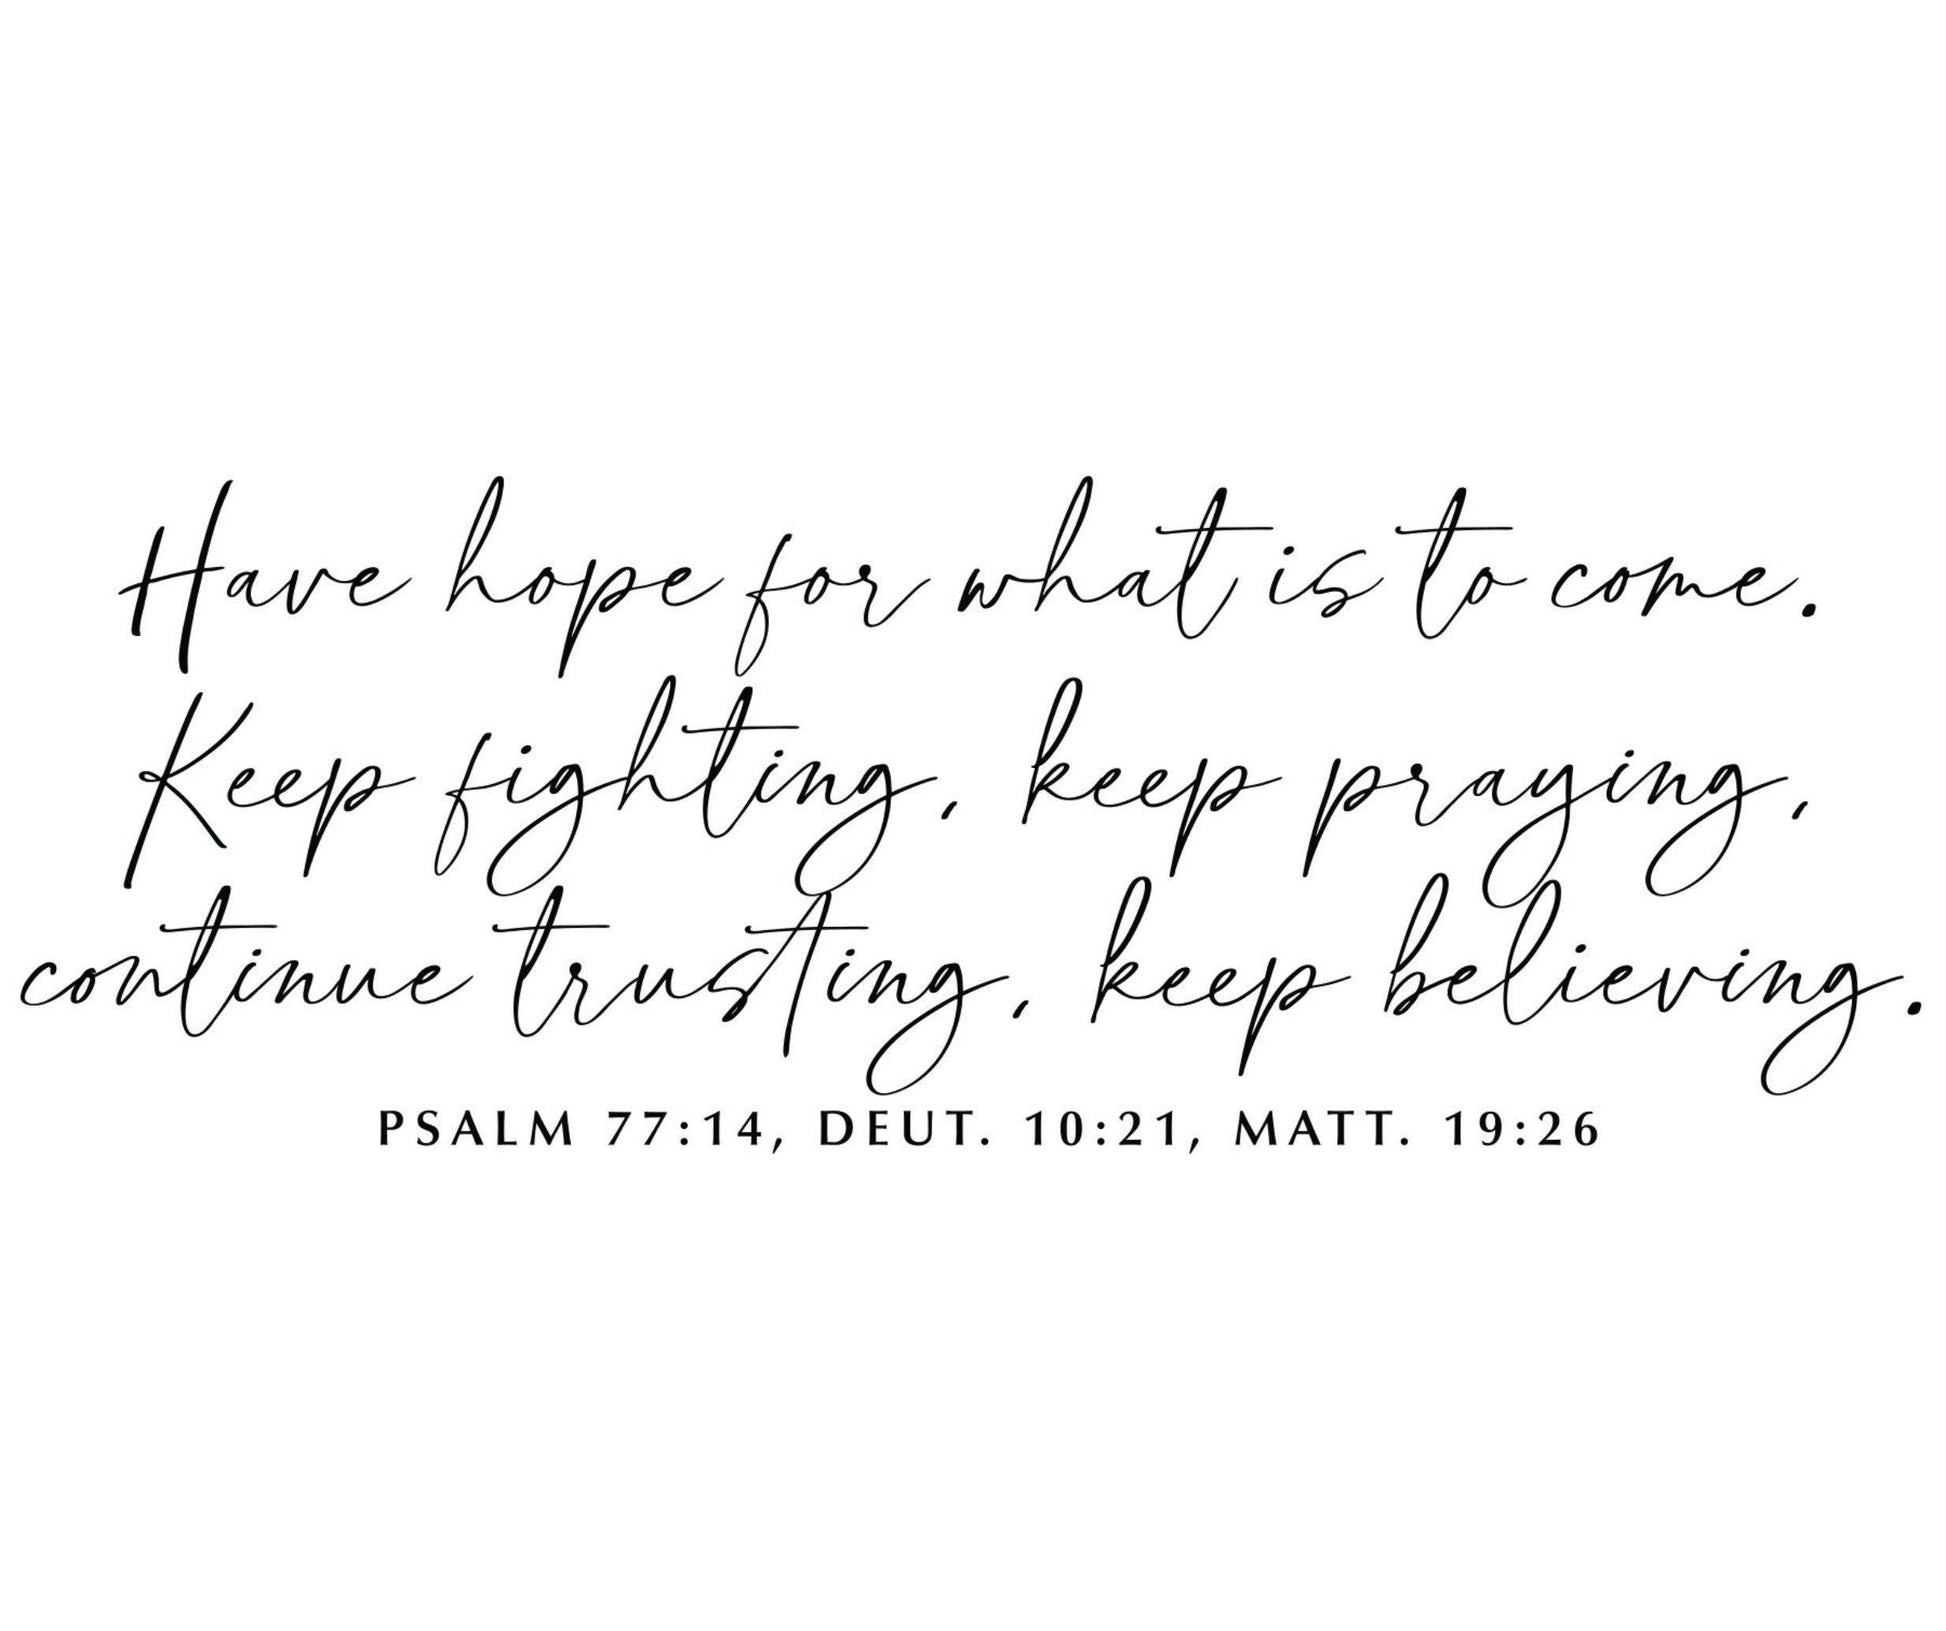 Have hope for what is to come.
Keep fighting, keep praying,
continue trusting, keep believing.
PSALM 77:14, DEUT. 10:21, MATT. 19:26